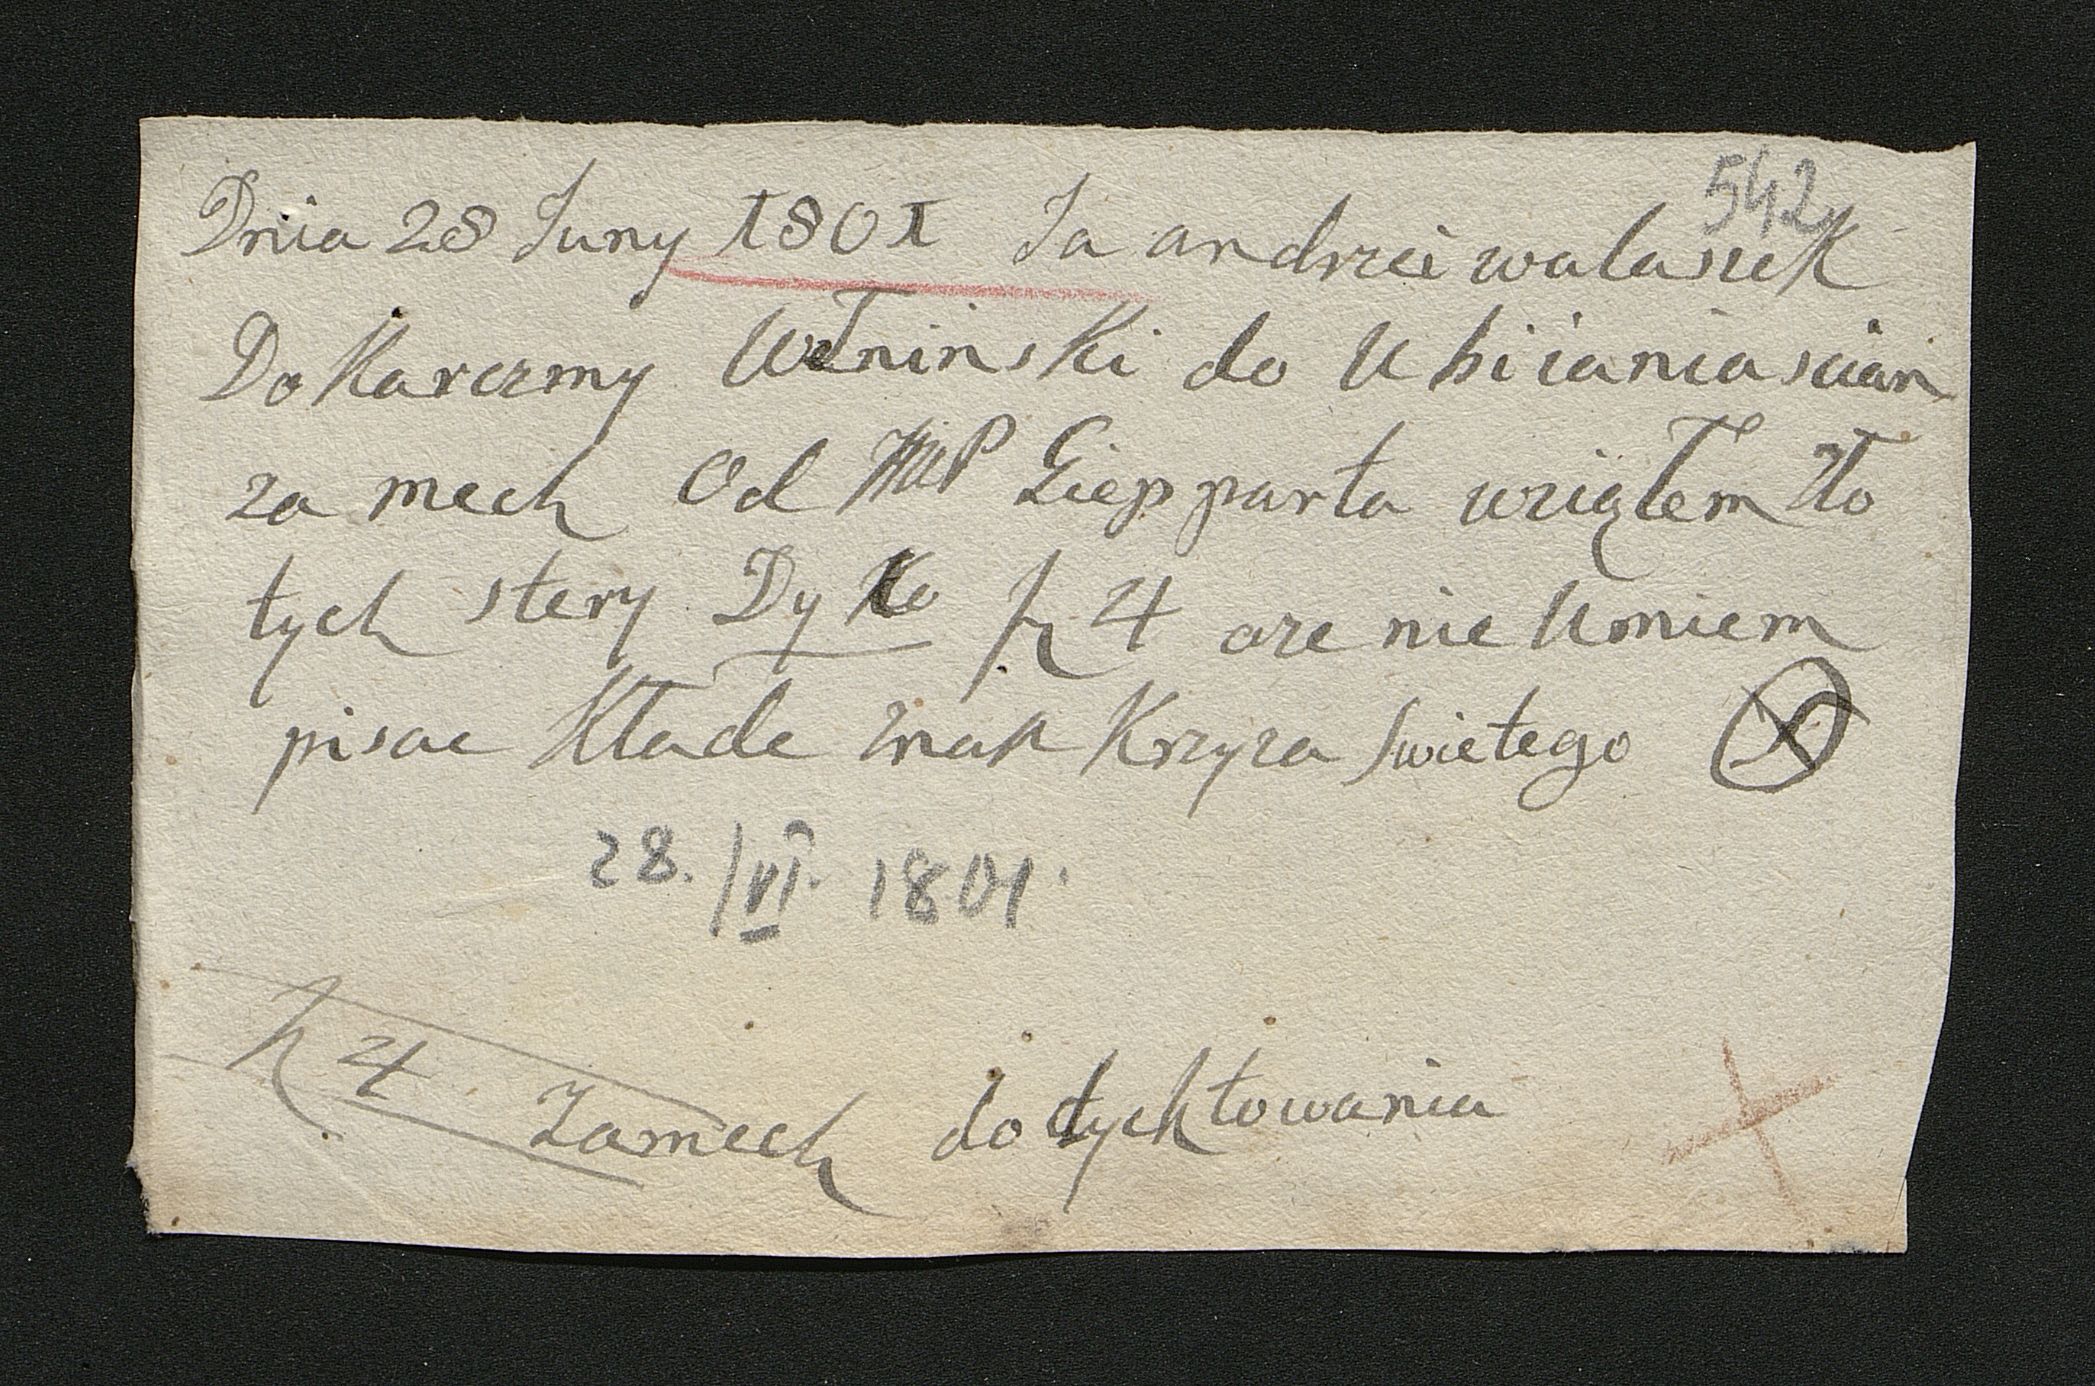 542
Dnia 28 Juny 1801 Ja andrzei walasek
Do Karczmy Wełninski do Ubiiania scian
za mech Od JMP Liepparta wziąłem zło
tych stery Dyko fl 4 aze nie Umiem
pisac Kłade znak Krzyza swietego
28./VI. 1801.
fl 4 Zamech do dychtowania